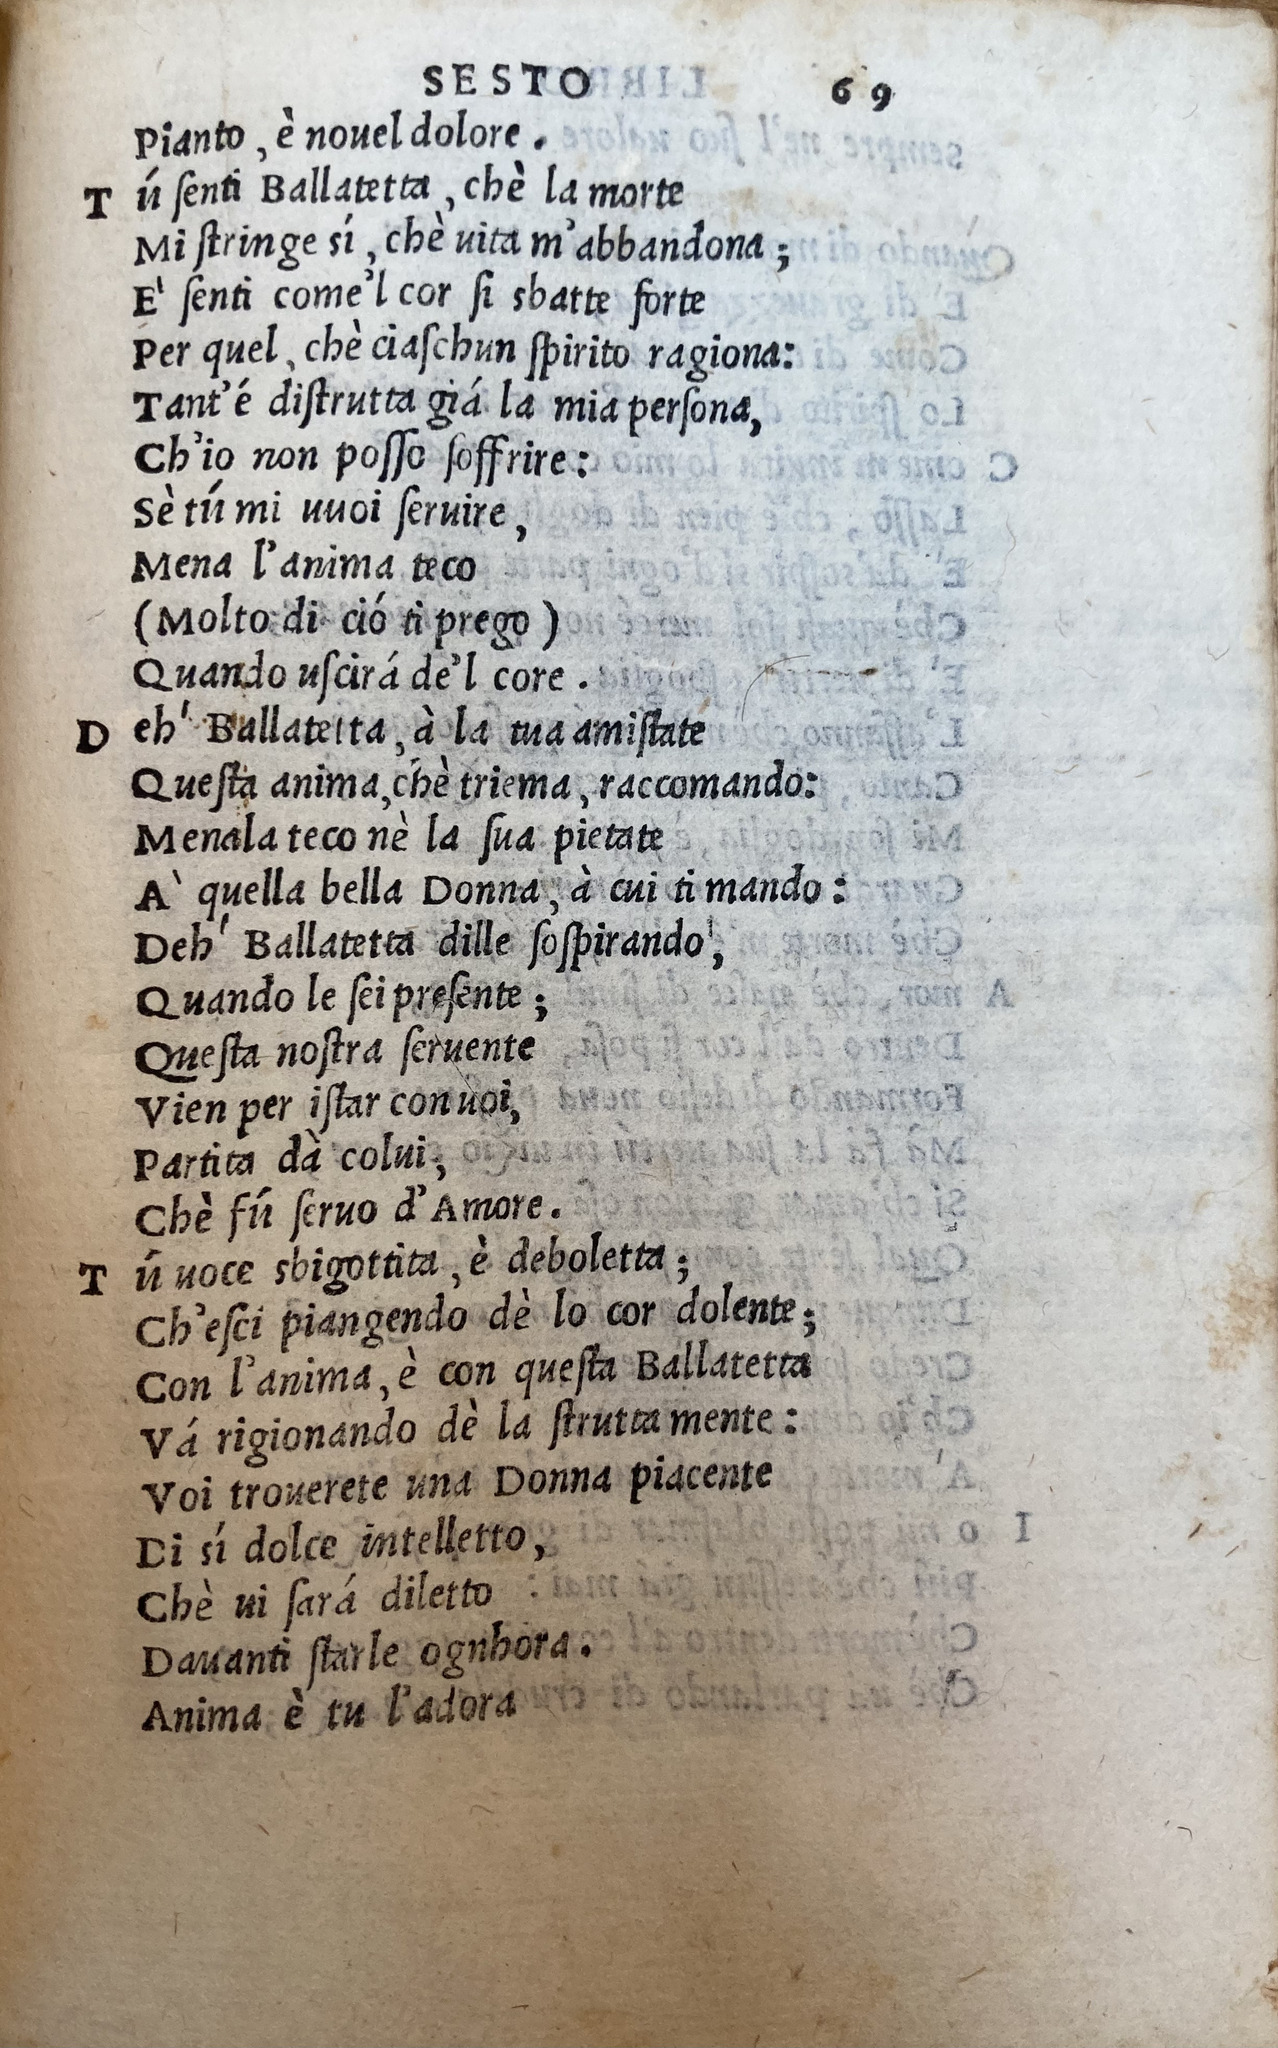 SESTO 69
Pianto, è nouel dolore.
Tú ſenti Ballatetta, chè la morte
Mi ſtringe sí, chè uita m'abbandona;
E' ſenti come'l cor ſi sbatte forte
Per quel, chè ciaſchun ſpirito ragiona:
Tant'é diſtrutta giá la mia perſona,
Ch'io non poſſo ſoffrire:
Sè tú mi uuoi ſeruire,
Mena l'anima teco
(Molto di ció ti prego)
Quando uſcirá de'l core.
Deh' Ballatetta, à la tua amiſtate
Queſta anima, chè triema, raccomando:
Menala teco nè la ſua pietate
A' quella bella Donna, à cui ti mando:
Deh' Ballatetta dille ſoſpirando,
Quando le ſei preſente;
Queſta noſtra ſeruente
Vien per iſtar con uoi,
Partita dà colui,
Chè fú ſeruo d'Amore.
Tú uoce sbigottita, è deboletta;
Ch'eſci piangendo dè lo cor dolente;
Con l'anima, è con queſta Ballatetta
Vá rigionando dè la ſtrutta mente:
Voi trouerete una Donna piacente
Di sí dolce intelletto,
Chè ui ſará diletto
Dauanti ſtarle ognhora.
Anima è tu l'adora